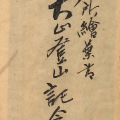 繪葉書
大山登山記念